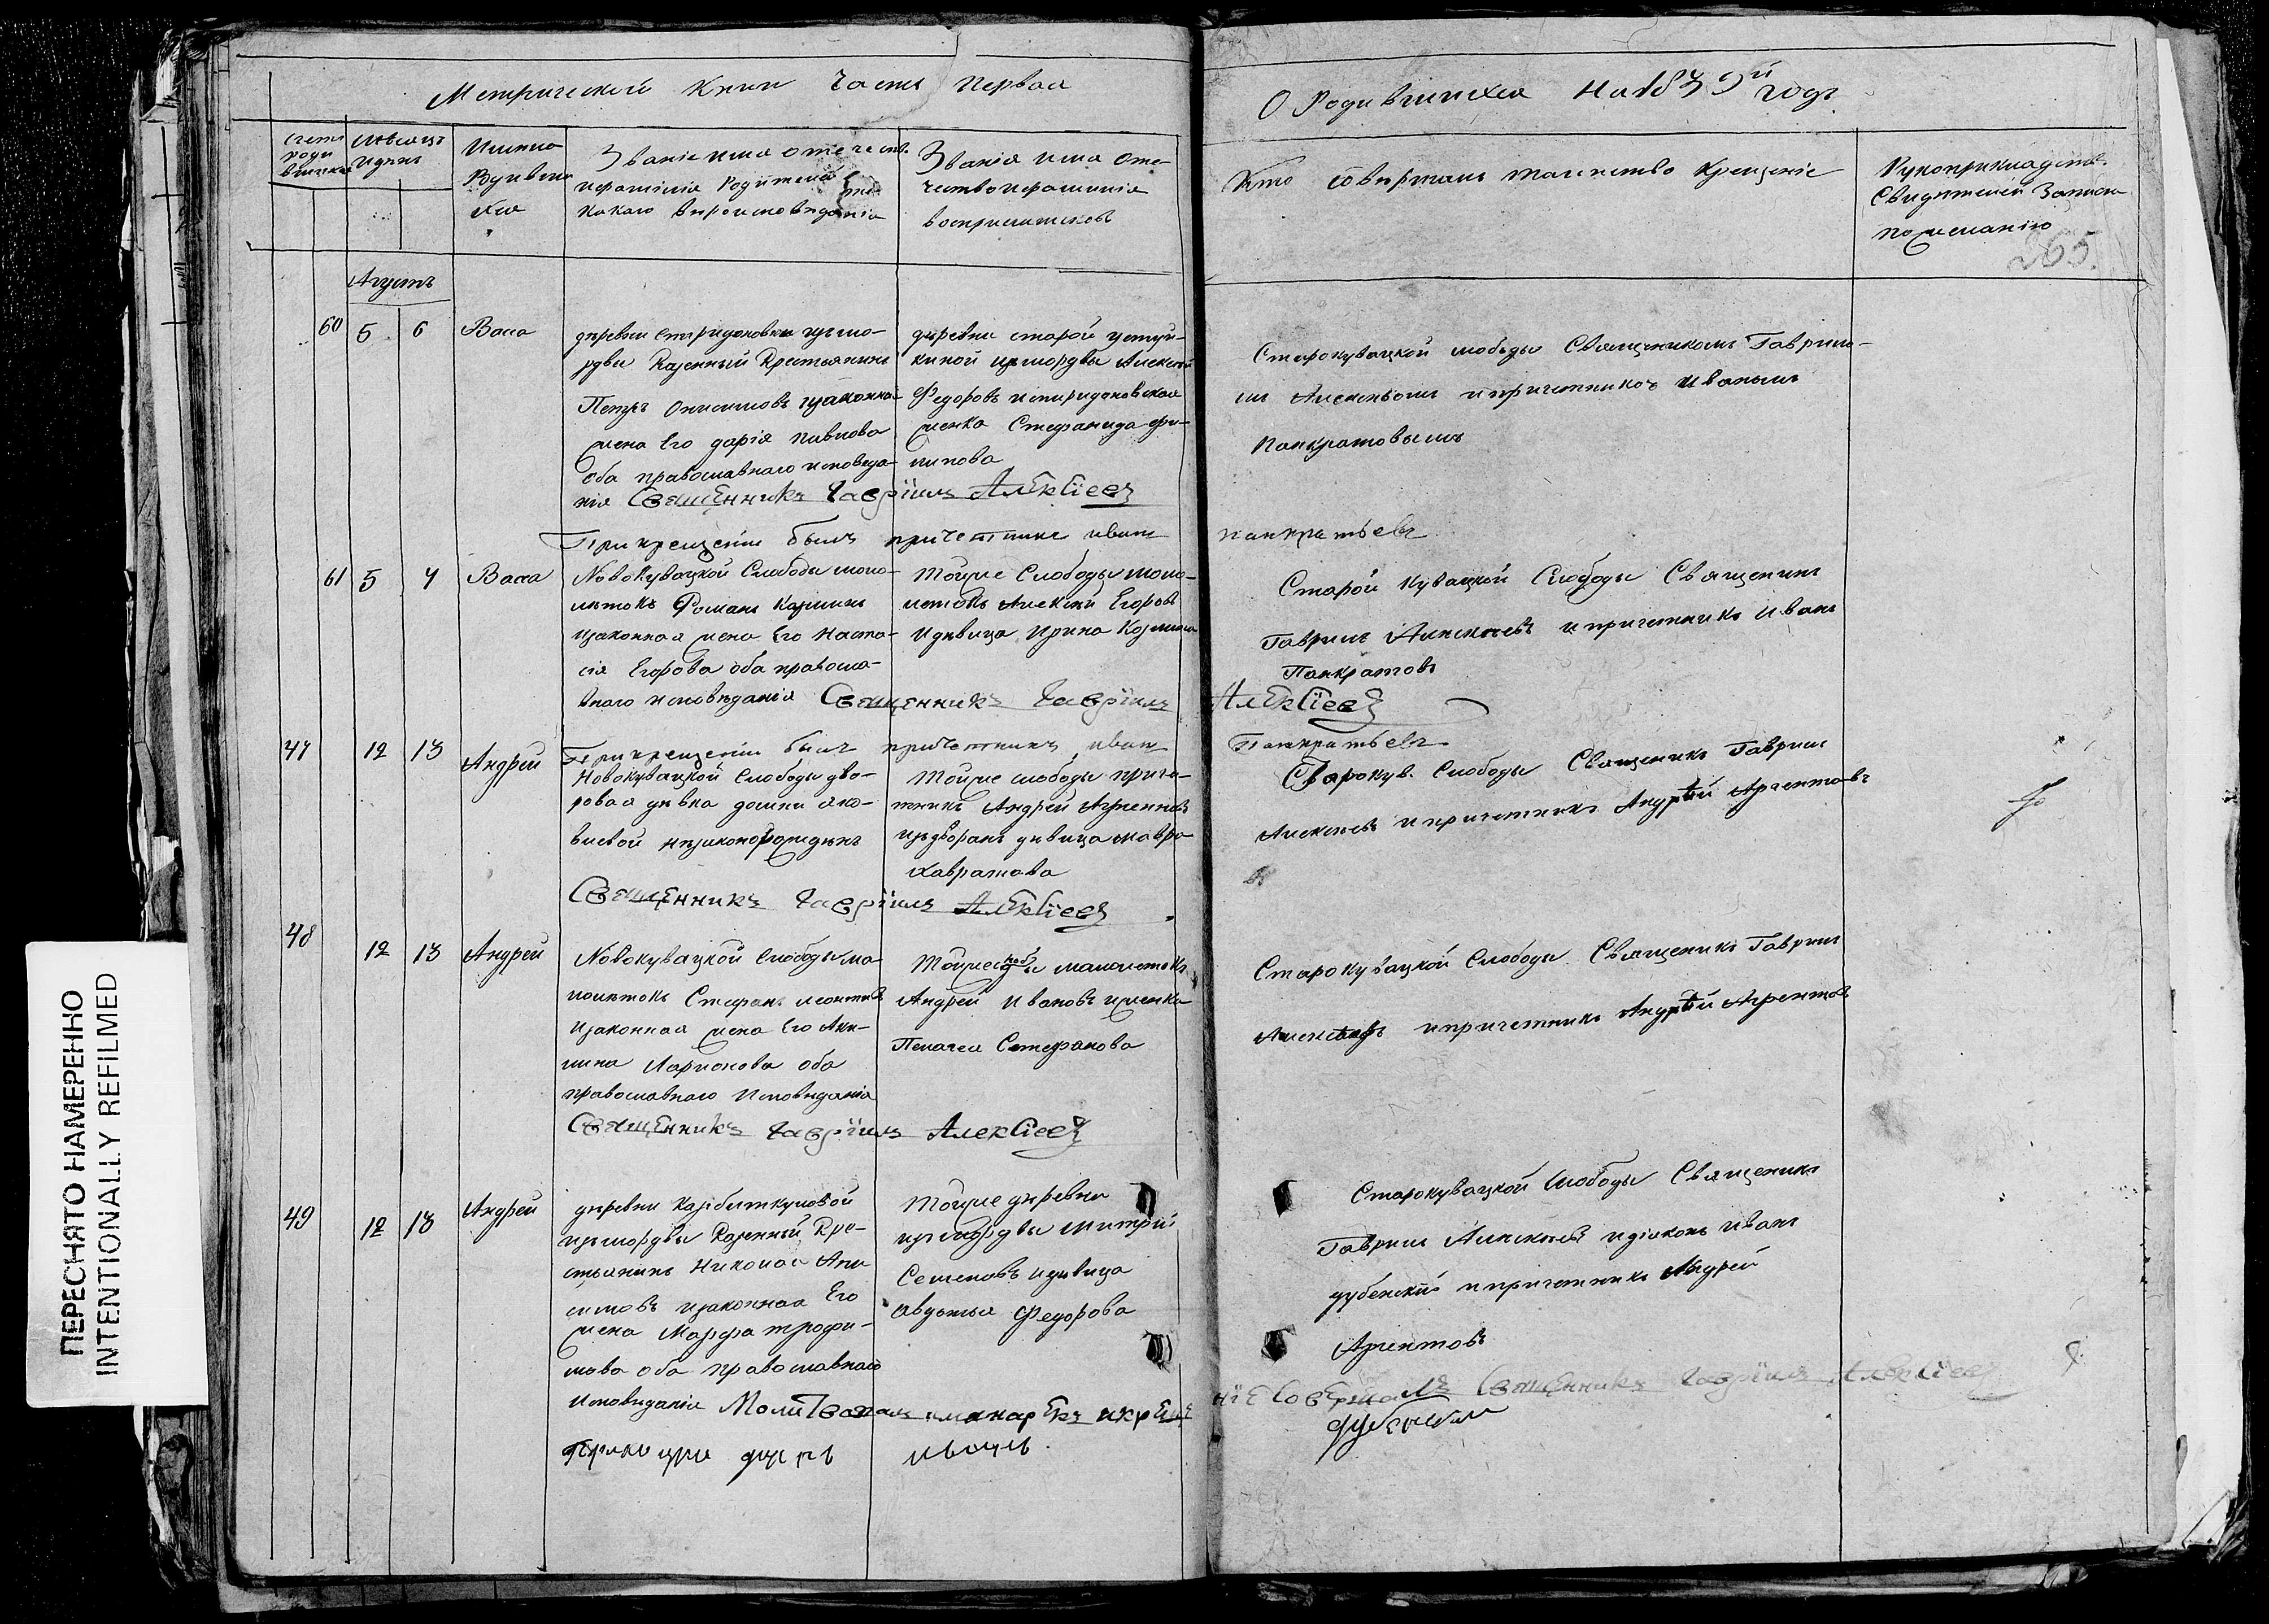 Метрической Книги Часть Первая
О Родившихся На 1839й годъ
Счетъ роди вшихся
Мѣсяцъ и день
Имяна Родивши хся
Званіе имя отечеств.
и фамилія Родителей
какаго вѣроисповѣданія
Званія имя оте-
чество и фамилія
воспріемниковъ
Кто совершалъ таинство крещеніе
Рукоприкладств.
Свидѣтелей Записи
по желанію
265.
Агустъ
60 5 6 Васа
деревни Спиридоновки измо-
рдвы Казенный Крестьянинъ
Петръ Онисимовъ изаконная
жена Его дарія павлова
оба православнаго исповеда-
нія Священникъ Гавріилъ Алексіевъ
деревни старой
киной измордвы Алексей
Федоровъ испиридоновская
женка Стефанида фи-
липова
Старокувацкой слободы Священикомъ Гаврило-
мъ Алексѣвымъ ипричетникомъ Иваномъ
Панкратовымъ
При крещеніи былъ причетникъ иванъ
панкратьевъ
61 5 7 Васса
Новокувацкой Слободы мало-
лѣтокъ Романъ Козминъ
изаконная жена Его Наста-
сія Егорова оба правосла-
внаго исповѣданія Священникъ Гавріилъ
Алексіевъ
Тойже Слободы мало-
летокъ Алексѣй Егоровъ
идѣвица Ирина Козмина
Старой Кувацкой Слободы Священикъ
Гаврилъ Алексѣевъ ипричетникъ Иванъ
Панкратовъ
При крещеніи былъ причетникъ иванъ
Панкратьевъ
47 12 13 Андрей
Новокувацкой Слободы дво-
ровая дѣвка домни яко-
влевой незаконорожденъ
Тойже слободы приче-
тникъ Андрей Аргентовъ
издворанъ дѣвица мавра
Хавратова
Старокув. Слободы Священикъ Гаврилъ
Алексѣевъ ипричетникъ Андрѣй Аргентовъ
Священникъ Гавріилъ Алексіевъ
48 12 13 Андрей
Новокувацкой Слободы ма-
лолѣтокъ Стефанъ леонтьевъ
изаконная жена Его Аку-
лина Ларионова оба
православнаго Исповѣданія
Священникъ Гавріилъ Алексіевъ
Тойже слободы малолетокъ
Андрей Ивановъ иженка
Пелагея Стефанова
Старокувацкой Слободы Священикъ Гаврилъ
Алексѣевъ ипричетникъ Андрѣй Аргентовъ
49 12 13 Андрей
деревни
измордвы Казенный Кре-
стьянинъ Николай Ани
симовъ изаконная Его
жена Марфа трофи-
мова оба православнаго
Исповѣданія
Тойже деревни
измордвы митрій
Семеновъ идѣвица
авдотья Федорова
Старокувацкой Слободы Священикъ
Гаврилъ Алексѣевъ идіаконъ Иванъ
дубенскій ипричетникъ Андрей
Аргентовъ
Молитвовалъ имянарѣкъ икреще
ніе совершалъ Священникъ Гавріилъ Алексіевъ
иванъ
дубенскій
ПЕРЕСНЯТО НАМЕРЕННО
INTENTIONALLY REFILMED